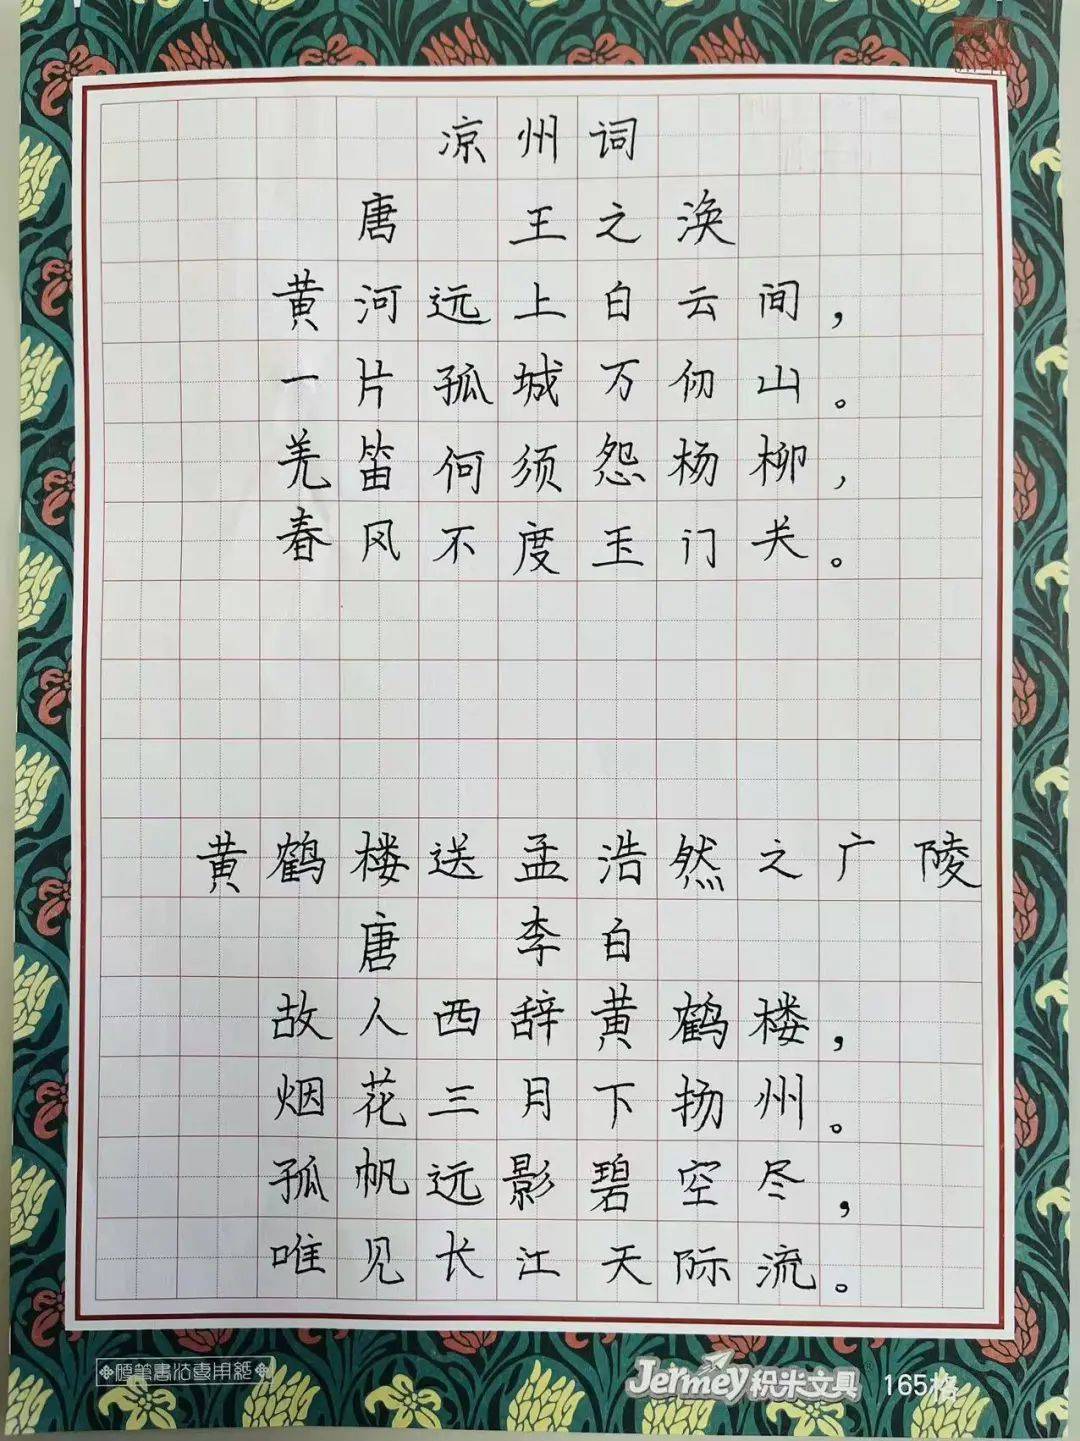 凉州词
唐 王之涣
黄河远上白云间，
一片孤城万仞山。
羌笛何须怨杨柳，
春风不度玉门关。
黄鹤楼送孟浩然之广陵
唐 李白
故人西辞黄鹤楼，
烟花三月下扬州。
孤帆远影碧空尽，
唯见长江天际流。
硬筆書法專用紙
Jermey积米文具 165格